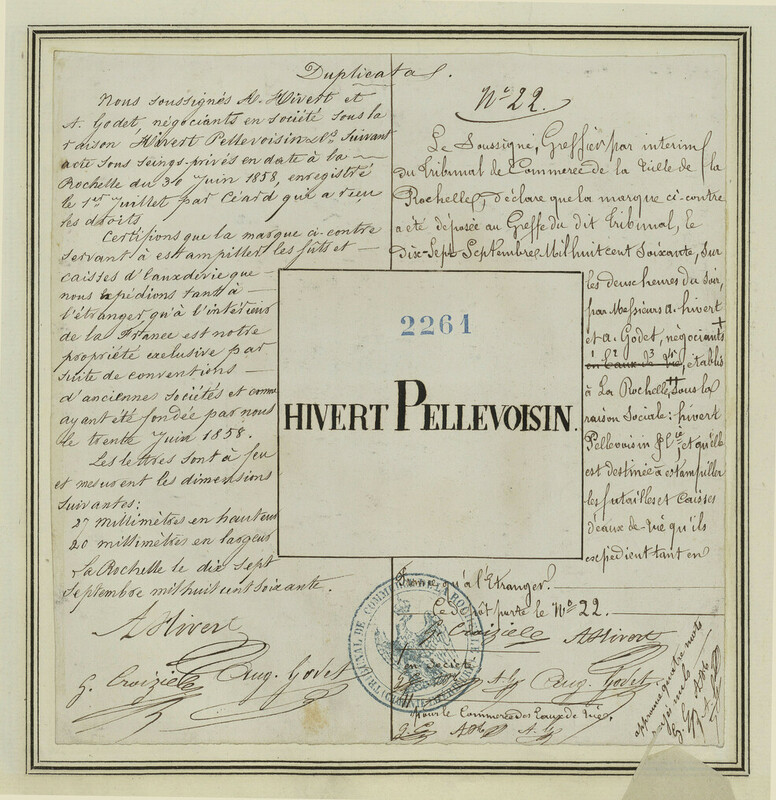 Duplicata.
Nous soussignés A. Hivert et
A. Godet, négociants en société sous la
raison Hivert Pellevoisin &Cie Suivant
acte sous seings-privés en date à la
Rochelle du 30 Juin 1858, enregistré
le 1er Juillet par Céard qui a reçu
les droits
Certifions que la marque ci-contre
servant à estampiller les fûts et
caisses d'eaux de vie que
nous expédions tant à
l'étranger qu'à l'intérieur
de la France est notre
propriété exclusive par
suite de conventions
d'anciennes sociétés et comme
ayant été fondée par nous
le trente Juin 1858.
Les lettres sont à feu
et mesurent les dimensions
suivantes:
27 millimètres en hauteur
20 millimètres en largeur
La Rochelle le dix sept
Septembre mil huit cent soixante.
A Hivert
G. Croizié Aug. Godet
No 22.
Le Soussigné, Greffier par interim
du Tribunal de Commerce de la Ville de la
Rochelle, déclare que la marque ci-contre
a été déposée au Greffe du dit Tribunal, le
Dix-Sept Septembre Mil huit cent Soixante, sur
les deux heures du soir,
par Messieurs A. hivert
et A. Godet, négociants
en Eaux de Vie, établis
à La Rochelle, sous la
raison Sociale: hivert
Pellevoisin & Cie, et qu'elle
est destinée à estampiller
les futailles et Caisses
d'eaux-de-Vie qu'ils
expédient tant en
France, qu'à l'Etranger.
Ce Dépôt porte le No 22.
G. Croizié A Hivert
en Société
Aug. Godet
pour le Commerce des Eaux de Vie.
approuvé quatre mots
rayés nuls
2261
HIVERT PELLEVOISIN.
TRIBUNAL DE COMMERCE LA ROCHELLE